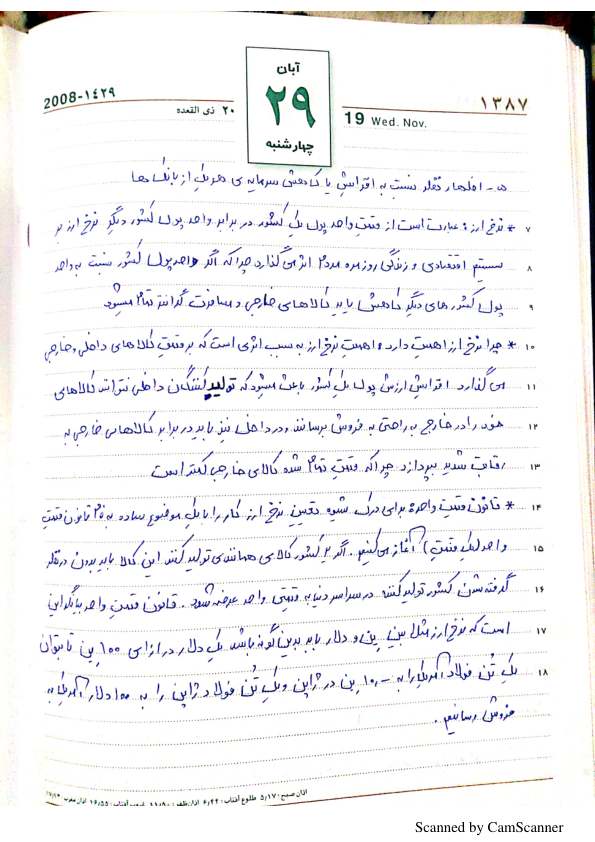 2008-١٤٢٩
٢٠ ذی القعده
آبان
۲۹
چهارشنبه
19 Wed. Nov.
۱۳۸۷
۵- اظهار نظر نسبت به افزایش یا کاهش سرمایه ی هر یک از بانک ها
۷ * نرخ ارز: عبارت است از قیمت واحد پول یک کشور در برابر واحد پول کشور دیگر نرخ ارز بر
۸ سیستم اقتصادی و زندگی روزمره مردم اثر می گذارد چرا که اگر واحد پول کشور نسبت به واحد
۹ پول کشور های دیگر کاهش یابد کالاهای خارجی و مسافرت گرانتر تمام میشود
۱۰ * چرا نرخ ارز اهمیت دارد: اهمیت نرخ ارز به سبب اثری است که بر قیمت کالاهای داخلی و خارجی
۱۱ می گذارد. افزایش ارزش پول یک کشور باعث میشود که تولید کنندگان داخلی نتوانند کالاهای
۱۲ خود را در خارج به راحتی به فروش برسانند و در داخل نیز باید در برابر کالاهایی خارجی به
۱۳ رقابت شدید بپردازد چرا که قیمت تمام شده کالای خارجی کمتر است
۱۴ * قانون قیمت واحد: برای درک شیوه تعیین نرخ ارز کار را با یک موضوع ساده به نام قانون قیمت
۱۵ واحد (یک قیمت) آغاز می کنیم. اگر ۲ کشور کالایی همانندی تولید کنند این کالا باید بدون در نظر
۱۶ گرفته شدن کشور تولید کننده در سراسر دنیا به قیمتی واحد عرضه شود. قانون قیمت واحد بیانگر این
۱۷ است که نرخ ارز مثلا بین ین و دلار باید بدین گونه باشد یک دلار در ازای ۱۰۰ ین تا بتوان
۱۸ یک تُن فولاد آمریکا را به ۱۰,۰۰۰ ین در ژاپن و یک تُن فولاد ژاپن را به ۱۰۰ دلار آمریکا به
فروش رسانیم.
اذان صبح: ۵/۱۷ طلوع آفتاب: ۶/۴۴ اذان ظهر: غروب آفتاب: ۱۶/۵۵ اذان مغرب:
Scanned by CamScanner